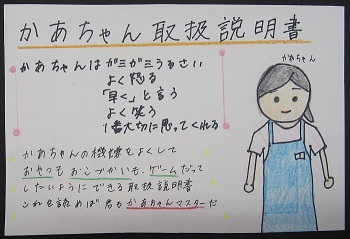 かあちゃん取扱説明書
かあちゃんはガミガミうるさい
よく怒る
「早く」と言う
よく笑う
1番大切に思ってくれる
かあちゃん
かあちゃんの機嫌をよくして
おやつも おこづかいも、ゲームだって
したいようにできる取扱説明書
これを読めば君もかあちゃんマスターだ